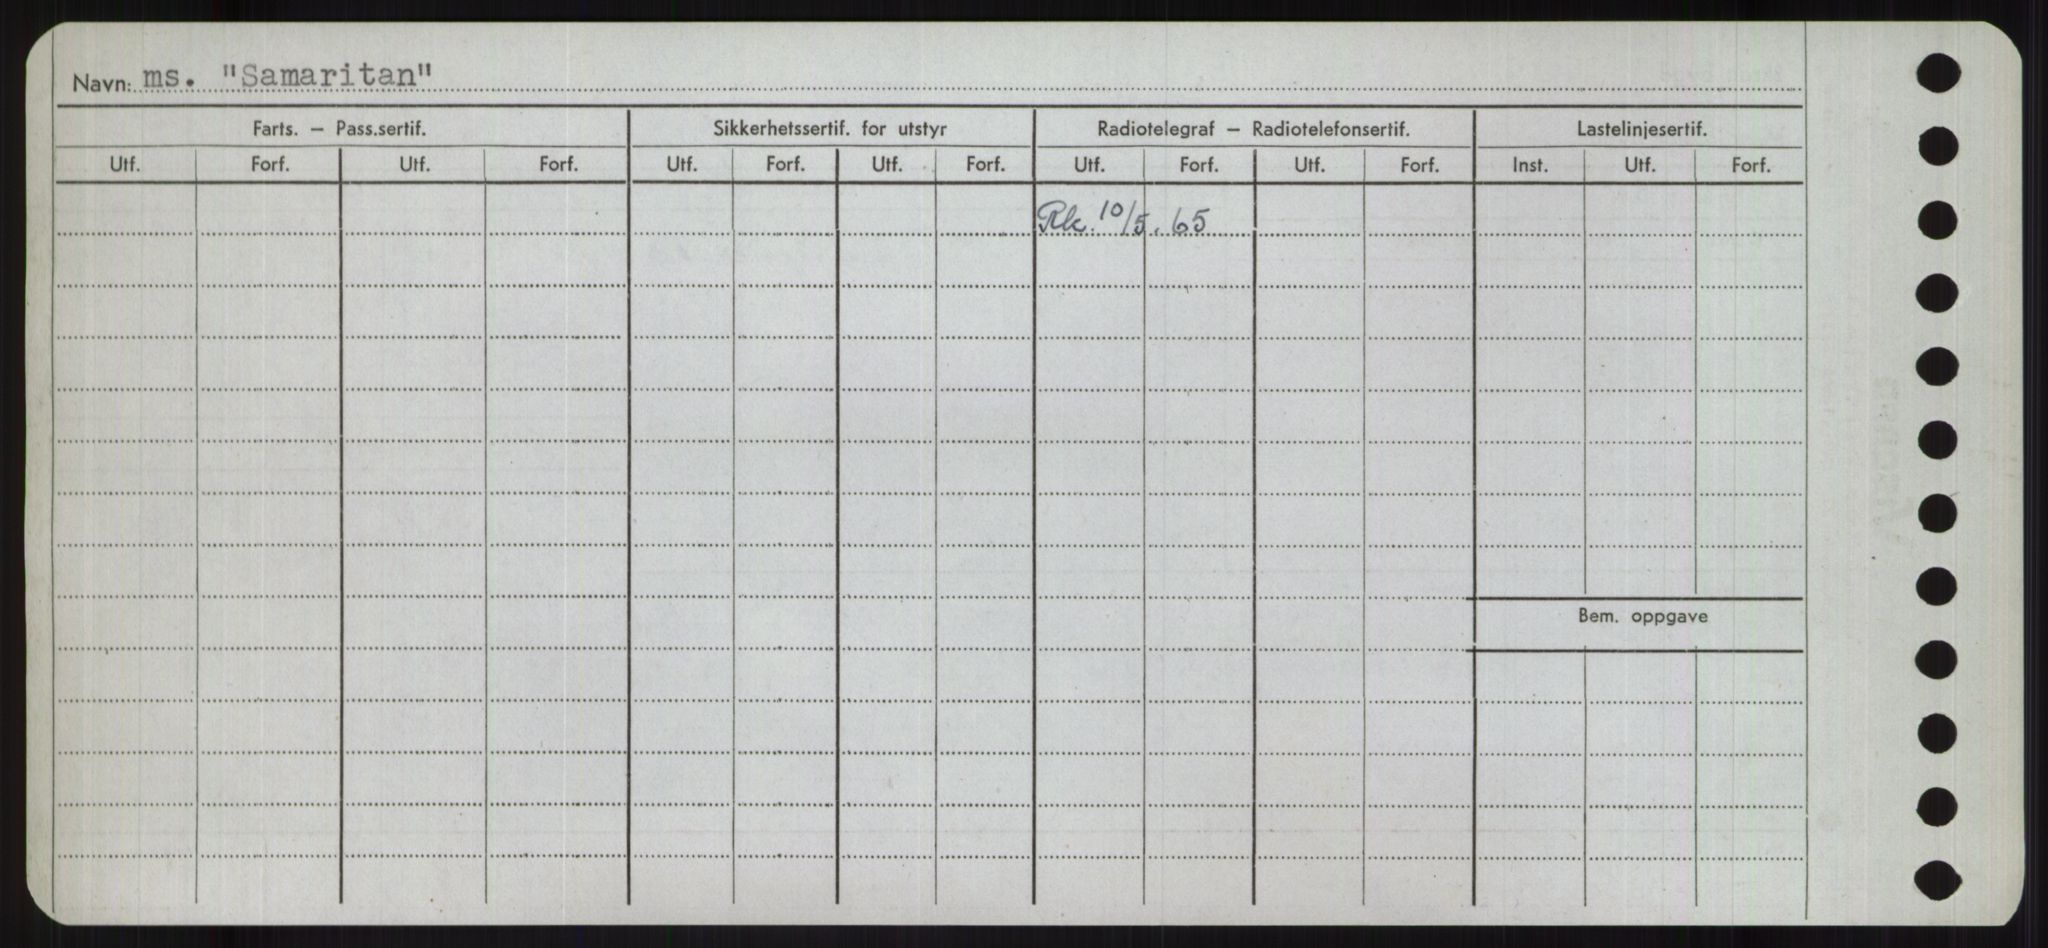 Navn: ms. "Samaritan"
Farts. – Pass.sertif. Sikkerhetssertif. for utstyr Radiotelegraf – Radiotelefonsertif. Lastelinjesertif.
Utf. Forf. Utf. Forf. Utf. Forf. Utf. Forf. Utf. Forf. Utf. Forf. Inst. Utf. Forf.
Rk. 10/5. 65
Bem. oppgave